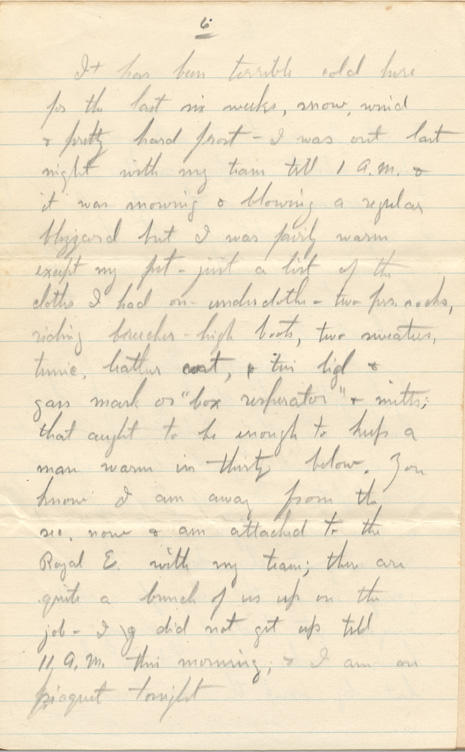 6
It has been terrible cold here
for the last six weeks, snow, wind
& pretty hard frost - I was out last
night with my team till 1 A.M. &
it was snowing & blowing a regular
blyzard but I was fairly warm
except my feet - just a list of the
cloths I had on - undercloths - two prs. socks,
riding breeches - high boots, two sweaters,
tunic, leather coat, tin lid &
gass mask or "box resperator" & mitts;
that aught to be enough to keep a
man warm in thirty below. You
know I am away from the
sec. now & am attached to the
Royal E. with my team; there are
quite a bunch of us up on the
job - I did not get up till
11 A.M. this morning; & I am on
piaquet tonight